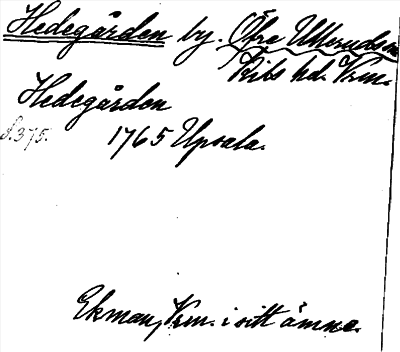 Hedegården by. Öfre Ulleruds sn
Kils hd. Vrm.
Hedegården
s. 375.
1765 Upsala.
Ekman, Vrm. i sitt ämne.